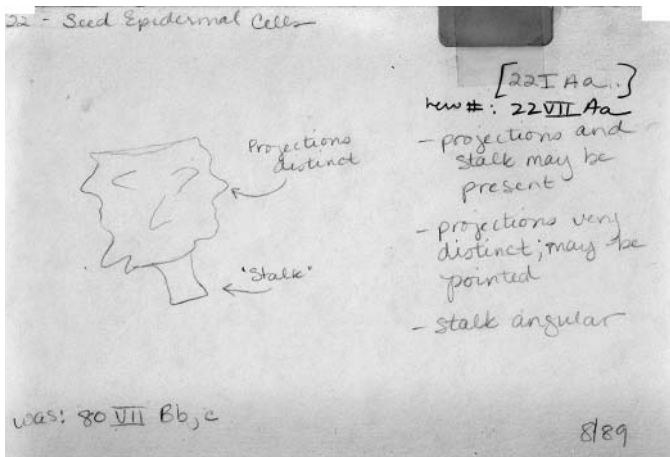 22 - Seed Epidermal Cells
[22 I Aa..]
new #: 22 VII Aa
Projections
distinct
- projections and
stalk may be
present
- projections very
distinct; may be
pointed
"Stalk"
- stalk angular
was: 80 VII Bb, c
8/89